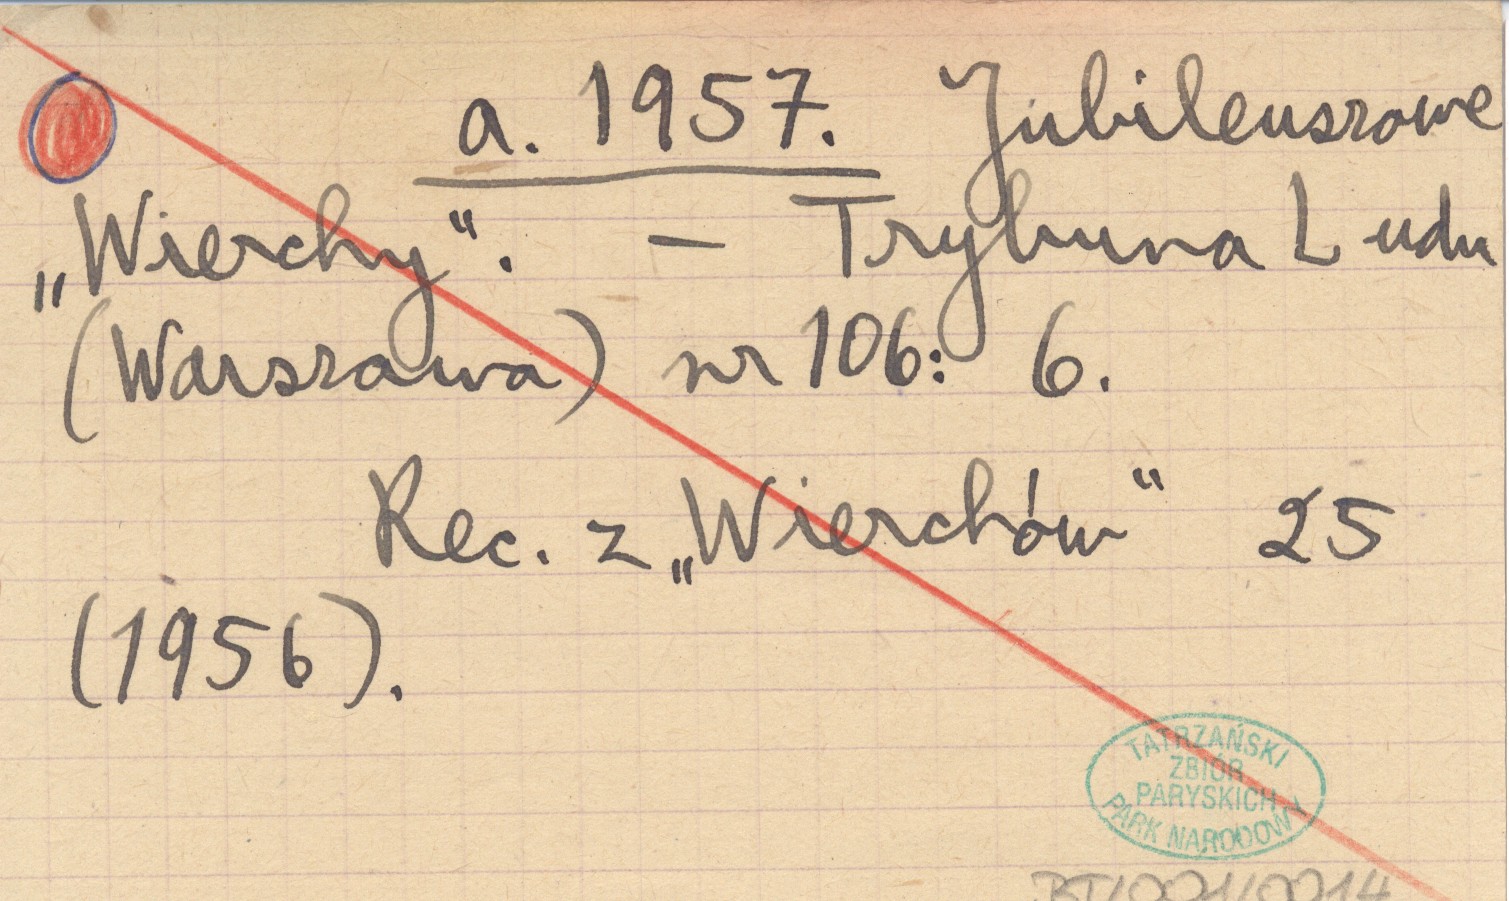 a. 1957. Jubileuszowe
„Wierchy”. – Trybuna Ludu
(Warszawa) nr 106: 6.
Rec. z „Wierchów” 25
(1956).
TATRZAŃSKI
ZBIÓR
PARYSKICH
PARK NARODOWY
BT/001/0014